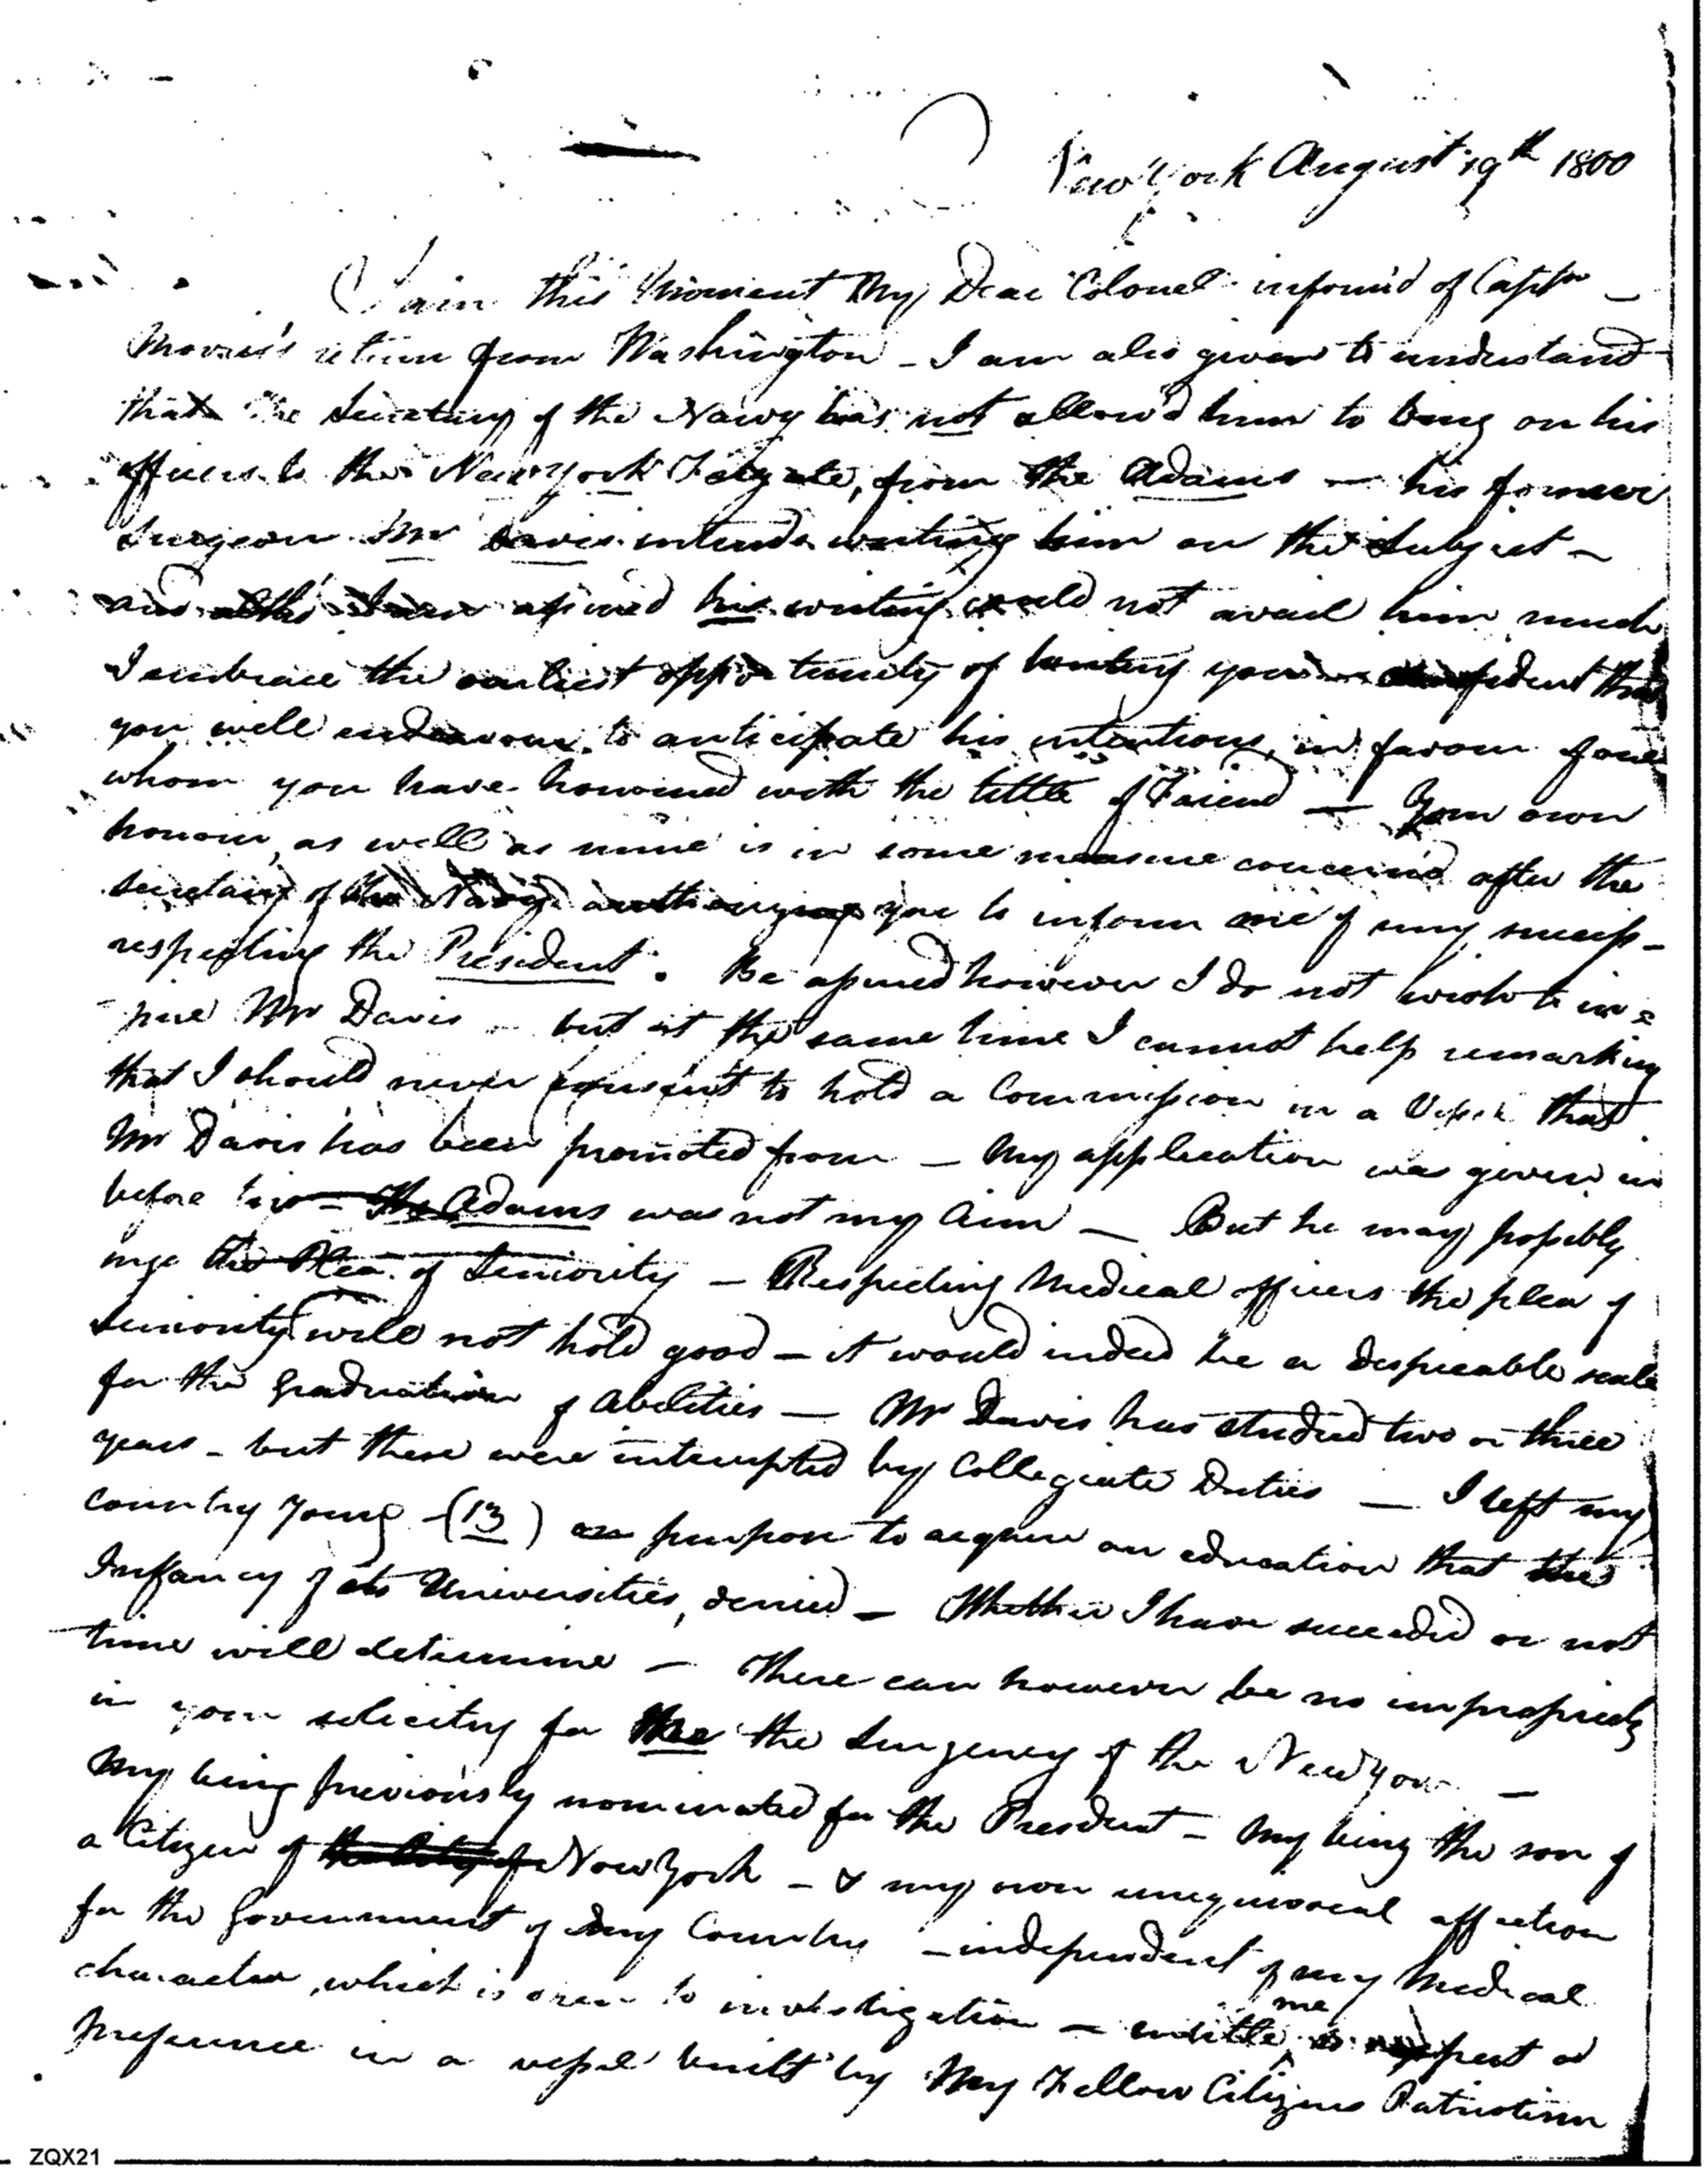 New York August 19th 1800
I am this Moment My Dear Colonel inform'd of Captn
Morris's return from Washington - I am also given to understand
that the Secretary of the Navy has not allow'd him to bring on his
officers to the New York Frigate, from the Adams — his former
Surgeon Mr Davis intends writing him on the Subject -
and altho' I am assured his writing would not avail him much
I embrace the earliest opportunity of writing you confident that
you will endeavour to anticipate his intentions, in favour of one
whom you have honoured with the tittle of Friend — Your own
honour, as well as mine is in some measure concern'd after the
Secretary of the Navy authorizing you to inform me of my success
respecting the President. Be assured however I do not wish to in=
-jure Mr Davis - but at the same time I cannot help remarking
that I should never consent to hold a Commission in a Vessel that
Mr Davis has been promoted from — My application was given in
before his - The Adams was not my Aim — But he may possibly
urge the Plea of Seniority — Respecting Medical officers the plea of
Seniority will not hold good - it would indeed be a despicable scale
for the Graduation of Abilities — Mr Davis has studied two or three
years - but these were interrupted by Collegiate Duties — I left my
Country Young (13) on purpose to acquire an education that the
Infancy of its Universities, denied - Whether I have succeeded or not
time will determine — There can however be no impropriety
in your soliciting for me the Surgency of the New York —
My being previously nominated for the President - My being the son of
a Citizen of the City of New York - & my own unequivocal affection
for the Government of my Country - independent of my Medical
character, which is open to investigation - entitle me to respect &
Preference in a vessel built by My Fellow Citizens Patriotism
ZQX21